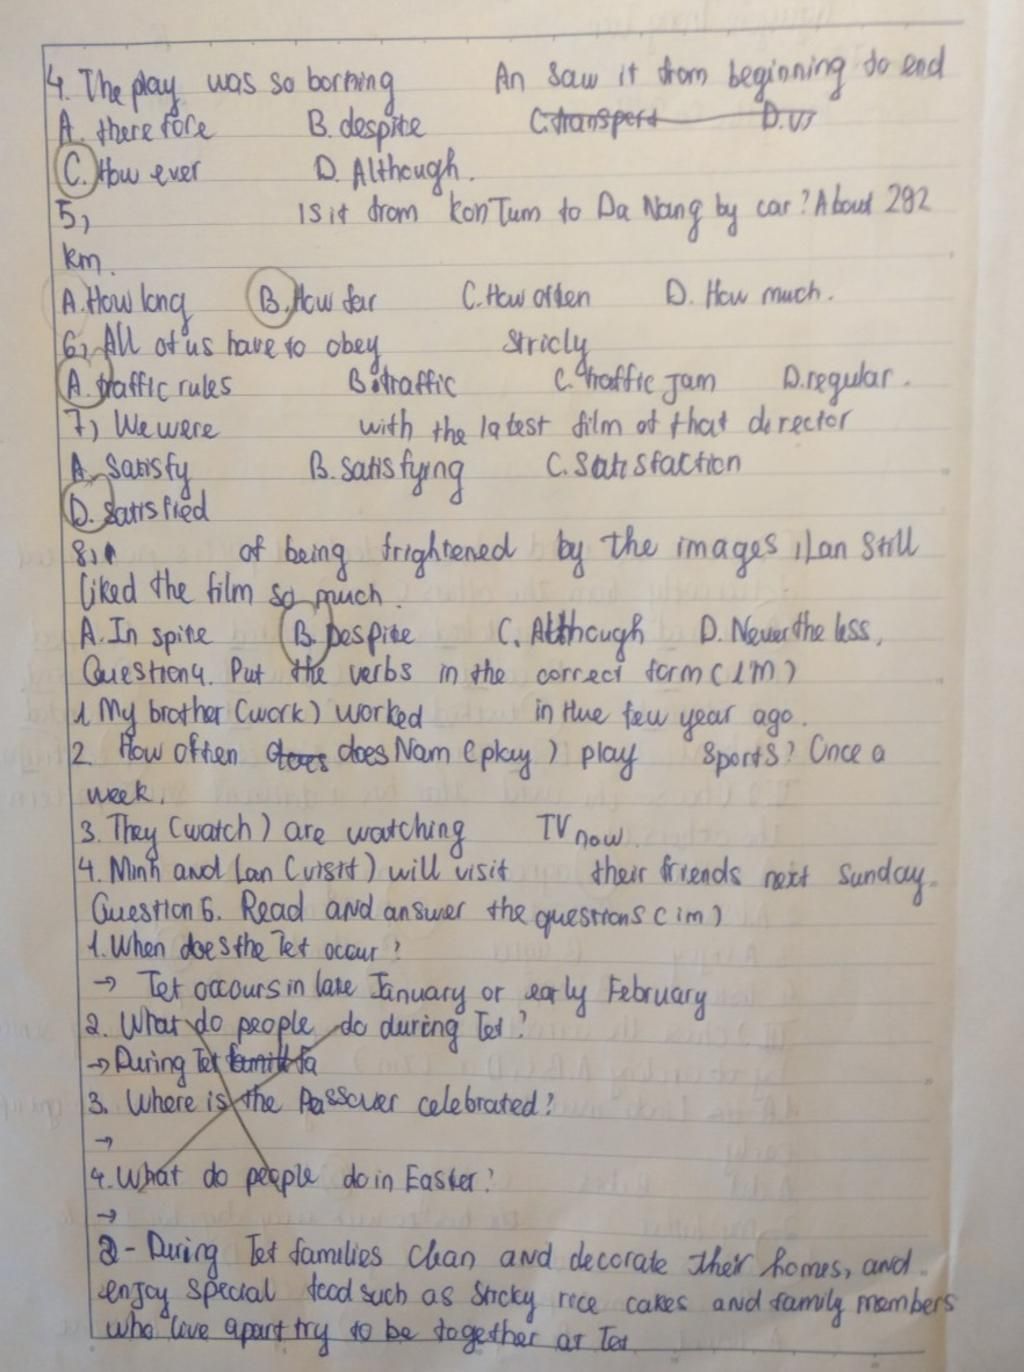 4. The play was so borning An saw it from beginning to end
A. therefore B. despite C. transpert D. us
C. How ever D. Although.
5, Is it from Kon Tum to Da Nang by car? About 292
km.
A. How long B. How far C. How often D. How much.
6, All of us have to obey stricly
A. traffic rules B. traffic C. traffic jam D. regular.
7, We were with the latest film of that director
A. Satisfy B. satisfying C. Satisfaction
D. satisfied
8, of being frightened by the images, Lan still
liked the film so much.
A. In spite B. Despite C. Although D. Never the less,
Question 4. Put the verbs in the correct form (1M)
1. My brother (work) worked in Hue few year ago.
2. How often does does Nam (play) play sports? Once a
week.
3. They (watch) are watching TV now.
4. Minh and Lan (visit) will visit their friends next Sunday.
Question 6. Read and answer the questions (1m)
1. When does the Tet occur?
→ Tet occours in late January or early February
2. What do people do during Tet?
→ During Tet famili fa
3. Where is the Passover celebrated?
→
4. What do people do in Easter?
→
2 - During Tet families clean and decorate their homes, and
enjoy special food such as sticky rice cakes and family members
who live apart try to be together at Tet